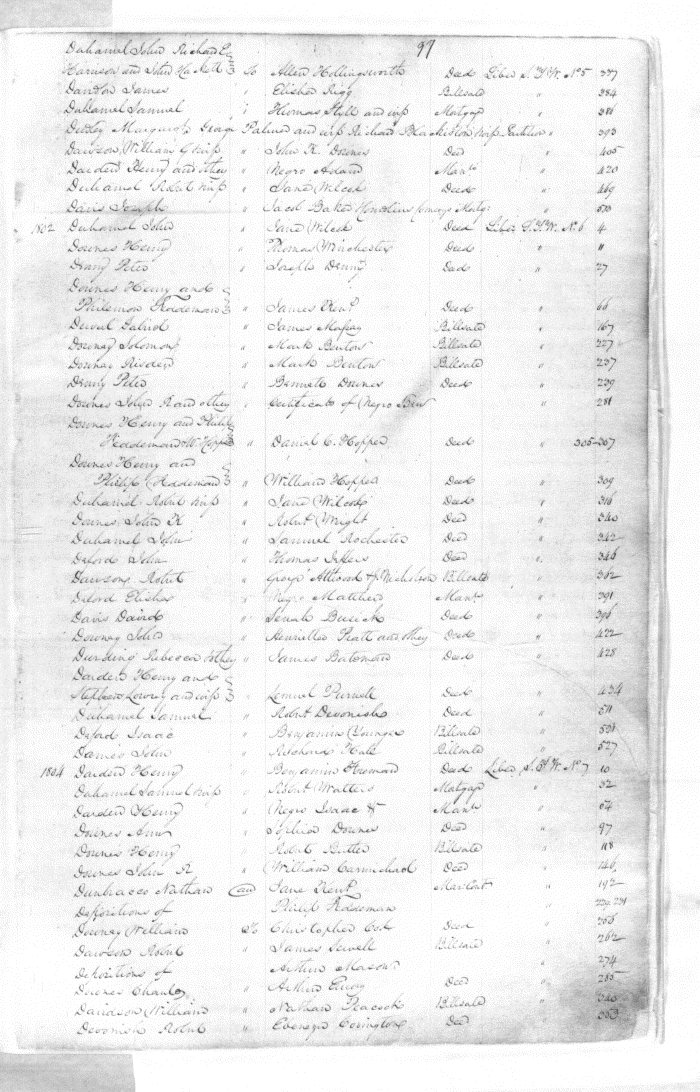 97
Duhamel John Richard E
Harrison and John Hackett To Allen Hollingsworth Deed Liber S.T.W. No 5 337
Dawson James " Elisha Rigg Billsale 384
Duhamel Samuel " Thomas Hyll and wife Mortgage " 386
Margaret George Palmer and wife Richard Blackiston wife Partition " 393
Dawson William & wife " John K. Downes Deed " 405
Darden Henry and others " Negro Adam Manu " 420
Duhamel Robert wife " Jane Wilcox Deed " 469
Davis Joseph " Jacob Baker Mortg " 510
1802 Duhamel John " Jane Wilcox Deed Liber S.T.W. No 6 4
Downes Henry " Thomas Winchester Deed " 11
Denny Peter " Joseph Denny Deed " 27
Downes Henry and
Philemon Feddeman " James Kent Deed " 66
James Massey Billsale " 167
Downey Solomon " Mark Benton Billsale " 227
Downey Risden " Mark Benton Billsale " 237
Denny Peter " Bennett Downes Deed " 239
Downes John K and others " Certificate of Negro Ben " 281
Downes Henry and Philip
Feddeman & W. Hopper " Daniel C. Hopper Deed " 305-307
Downes Henry and
Philip Feddeman " William Hopper Deed " 309
Duhamel Robert wife " Jane Wilcox Deed " 316
Downes John K " Robert Wright Deed " 340
Duhamel John " Samuel Rochester Deed " 342
Deford John " Thomas Deed " 346
Dawson Robert " George Attwood & Nicholson Billsale " 362
Deford Elisha " Negro Matthew Manu " 391
Davis David " Busick Deed " 396
Downey John " Henrietta Pratt and others Deed " 422
Rebecca & others " James Bateman Deed " 428
Darden Henry and
Stephen Lowrey and wife " Lemuel Purnell Deed " 434
Duhamel Samuel " Robert Devonish Deed " 511
Deford Isaac " Benjamin Younger Billsale " 521
James John " Richard Hall Billsale " 527
1804 Darden Henry " Benjamin Deed Liber S.T.W. No 7 10
Duhamel Samuel wife " Robert Walters Mortgage " 32
Darden Henry " Negro Isaac &c Manu " 64
Downes Ann " Sophia Downes Deed " 97
Downes Henry " Robert Butler Billsale " 118
Downes John K " William Carmichael Deed " 146
Nathan and Jane Kent Mar Cont " 192
Depositions of Philip Feddeman
Downey William To Christopher Cox Deed " 256
Dawson Robert " James Sewell Billsale " 262
Depositions of Arthur Mason " 274
Downes Charles " Arthur Emory Deed " 285
Davidson William " Nathan Peacock Billsale " 340
Devonish Robert " Ebenezer Covington Deed " 350